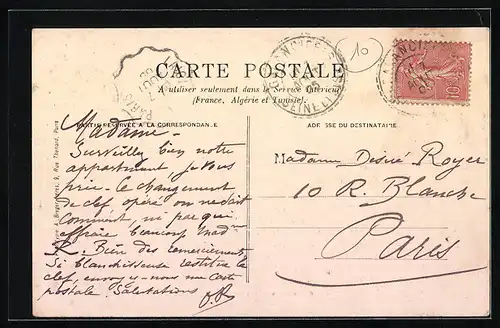 10
CARTE POSTALE
A utiliser seulement dans le Service Intérieur
(France, Algérie et Tunisie).
PARTIE RÉSERVÉE A LA CORRESPONDANCE
ADRESSE DU DESTINATAIRE
Madame -
Surveillez bien notre
appartement je vous
prie - le changement
de clef opéré on ne sait
comment, ni par qui
effraie beaucoup Mad
R - Bien des remerciements
Si blanchisseuse restitue la
clef, envoyez-nous une carte
postale. Salutations
Madame Désiré Royer
10 R. Blanche
Paris